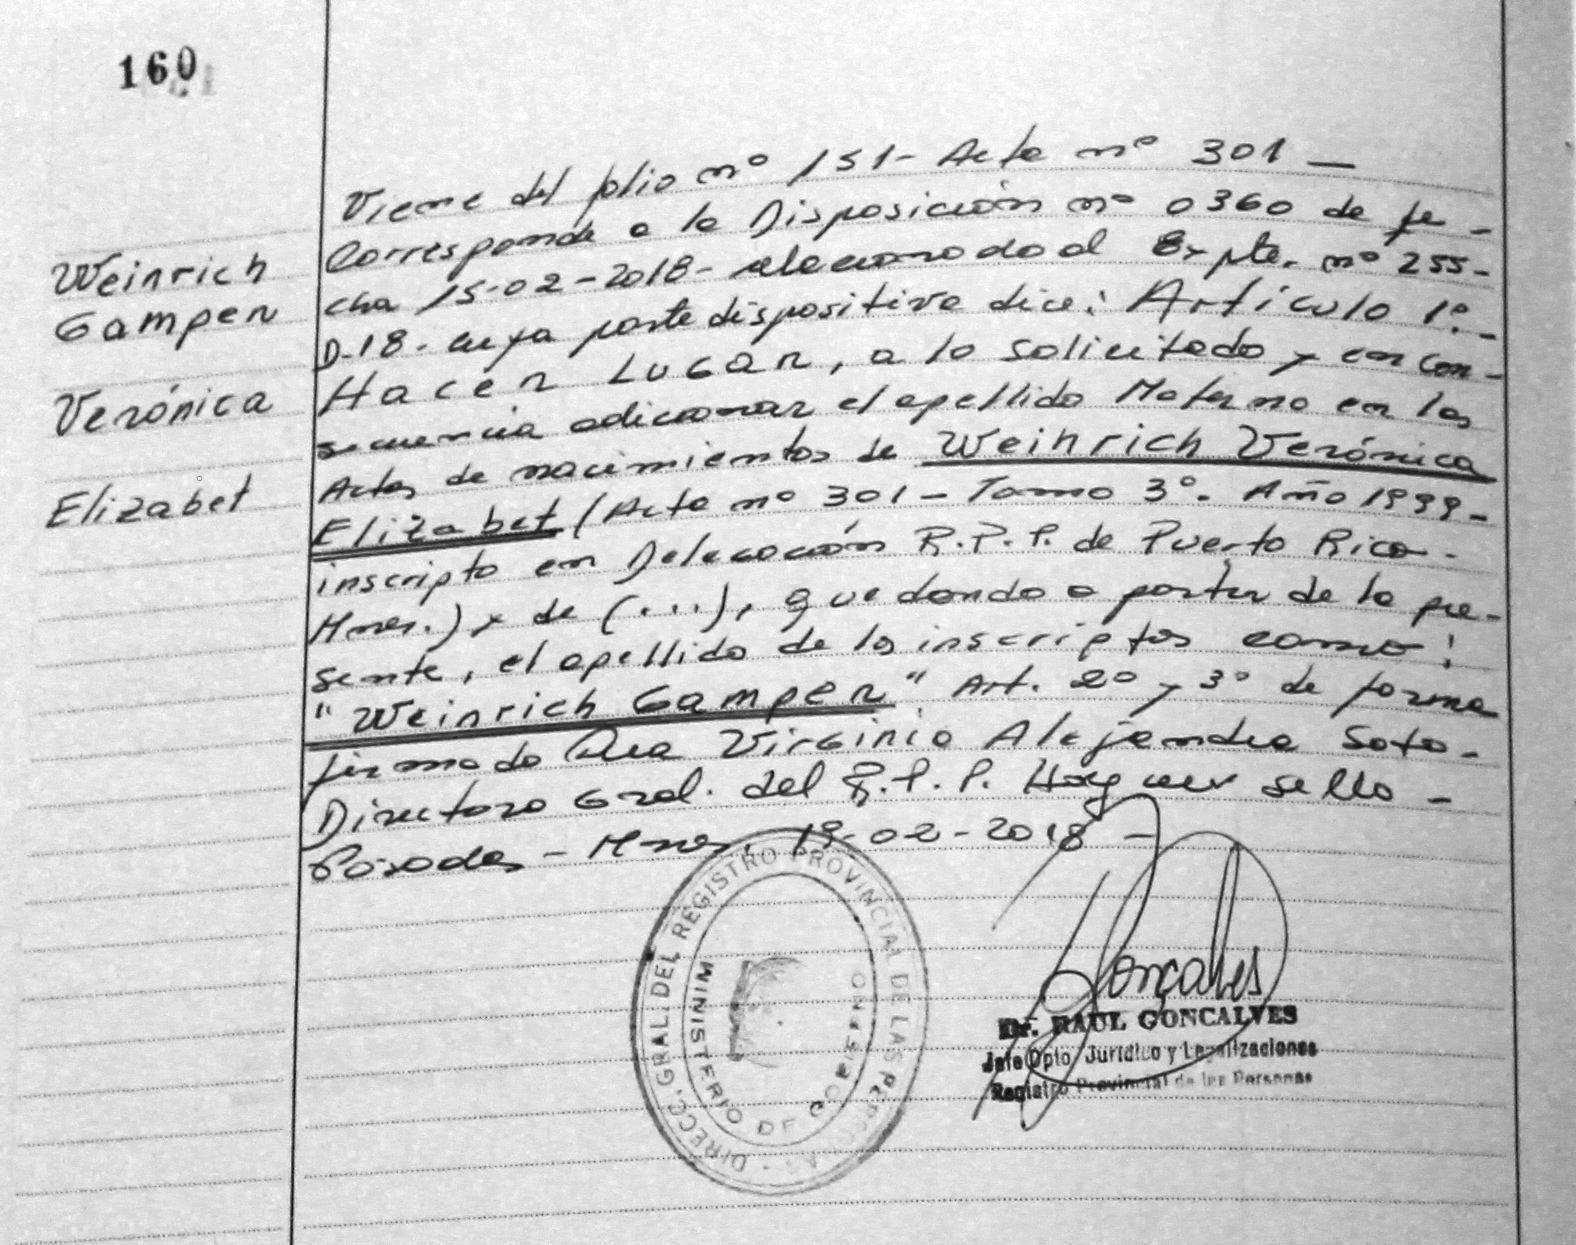 160
Weinrich
Gamper
Verónica
Elizabet
Viene del folio nº 151- Acta nº 301 —
Corresponde a la Disposición nº 0360 de fe-
cha 15-02-2018- relacionado al Expte. nº 255-
D-18- cuya parte dispositiva dice: Artículo 1º.-
Hacer Lugar, a lo solicitado y en con-
secuencia adicionar el apellido Materno en las
Actas de nacimientos de Weinrich Verónica
Elizabet (Acta nº 301 - Tomo 3º. Año 1999-
inscripto en Delegación R.P.P. de Puerto Rico-
Mnes.) y de (...), quedando a partir de la pre-
sente, el apellido de los inscriptos como:
"Weinrich Gamper" Art. 2º y 3º de forma
firmado Dra Virginia Alejandra Soto-
Directora Gral. del R.P.P. Hay un sello -
Posadas - Mnes. 19-02-2018 -
DIRECC. GRAL. DEL REGISTRO PROVINCIAL DE LAS PERSONAS -
MINISTERIO DE GOBIERNO
Gonçalves
Dr. RAUL GONCALVES
Jefe Dpto. Jurídico y Legalizaciones
Registro Provincial de las Personas